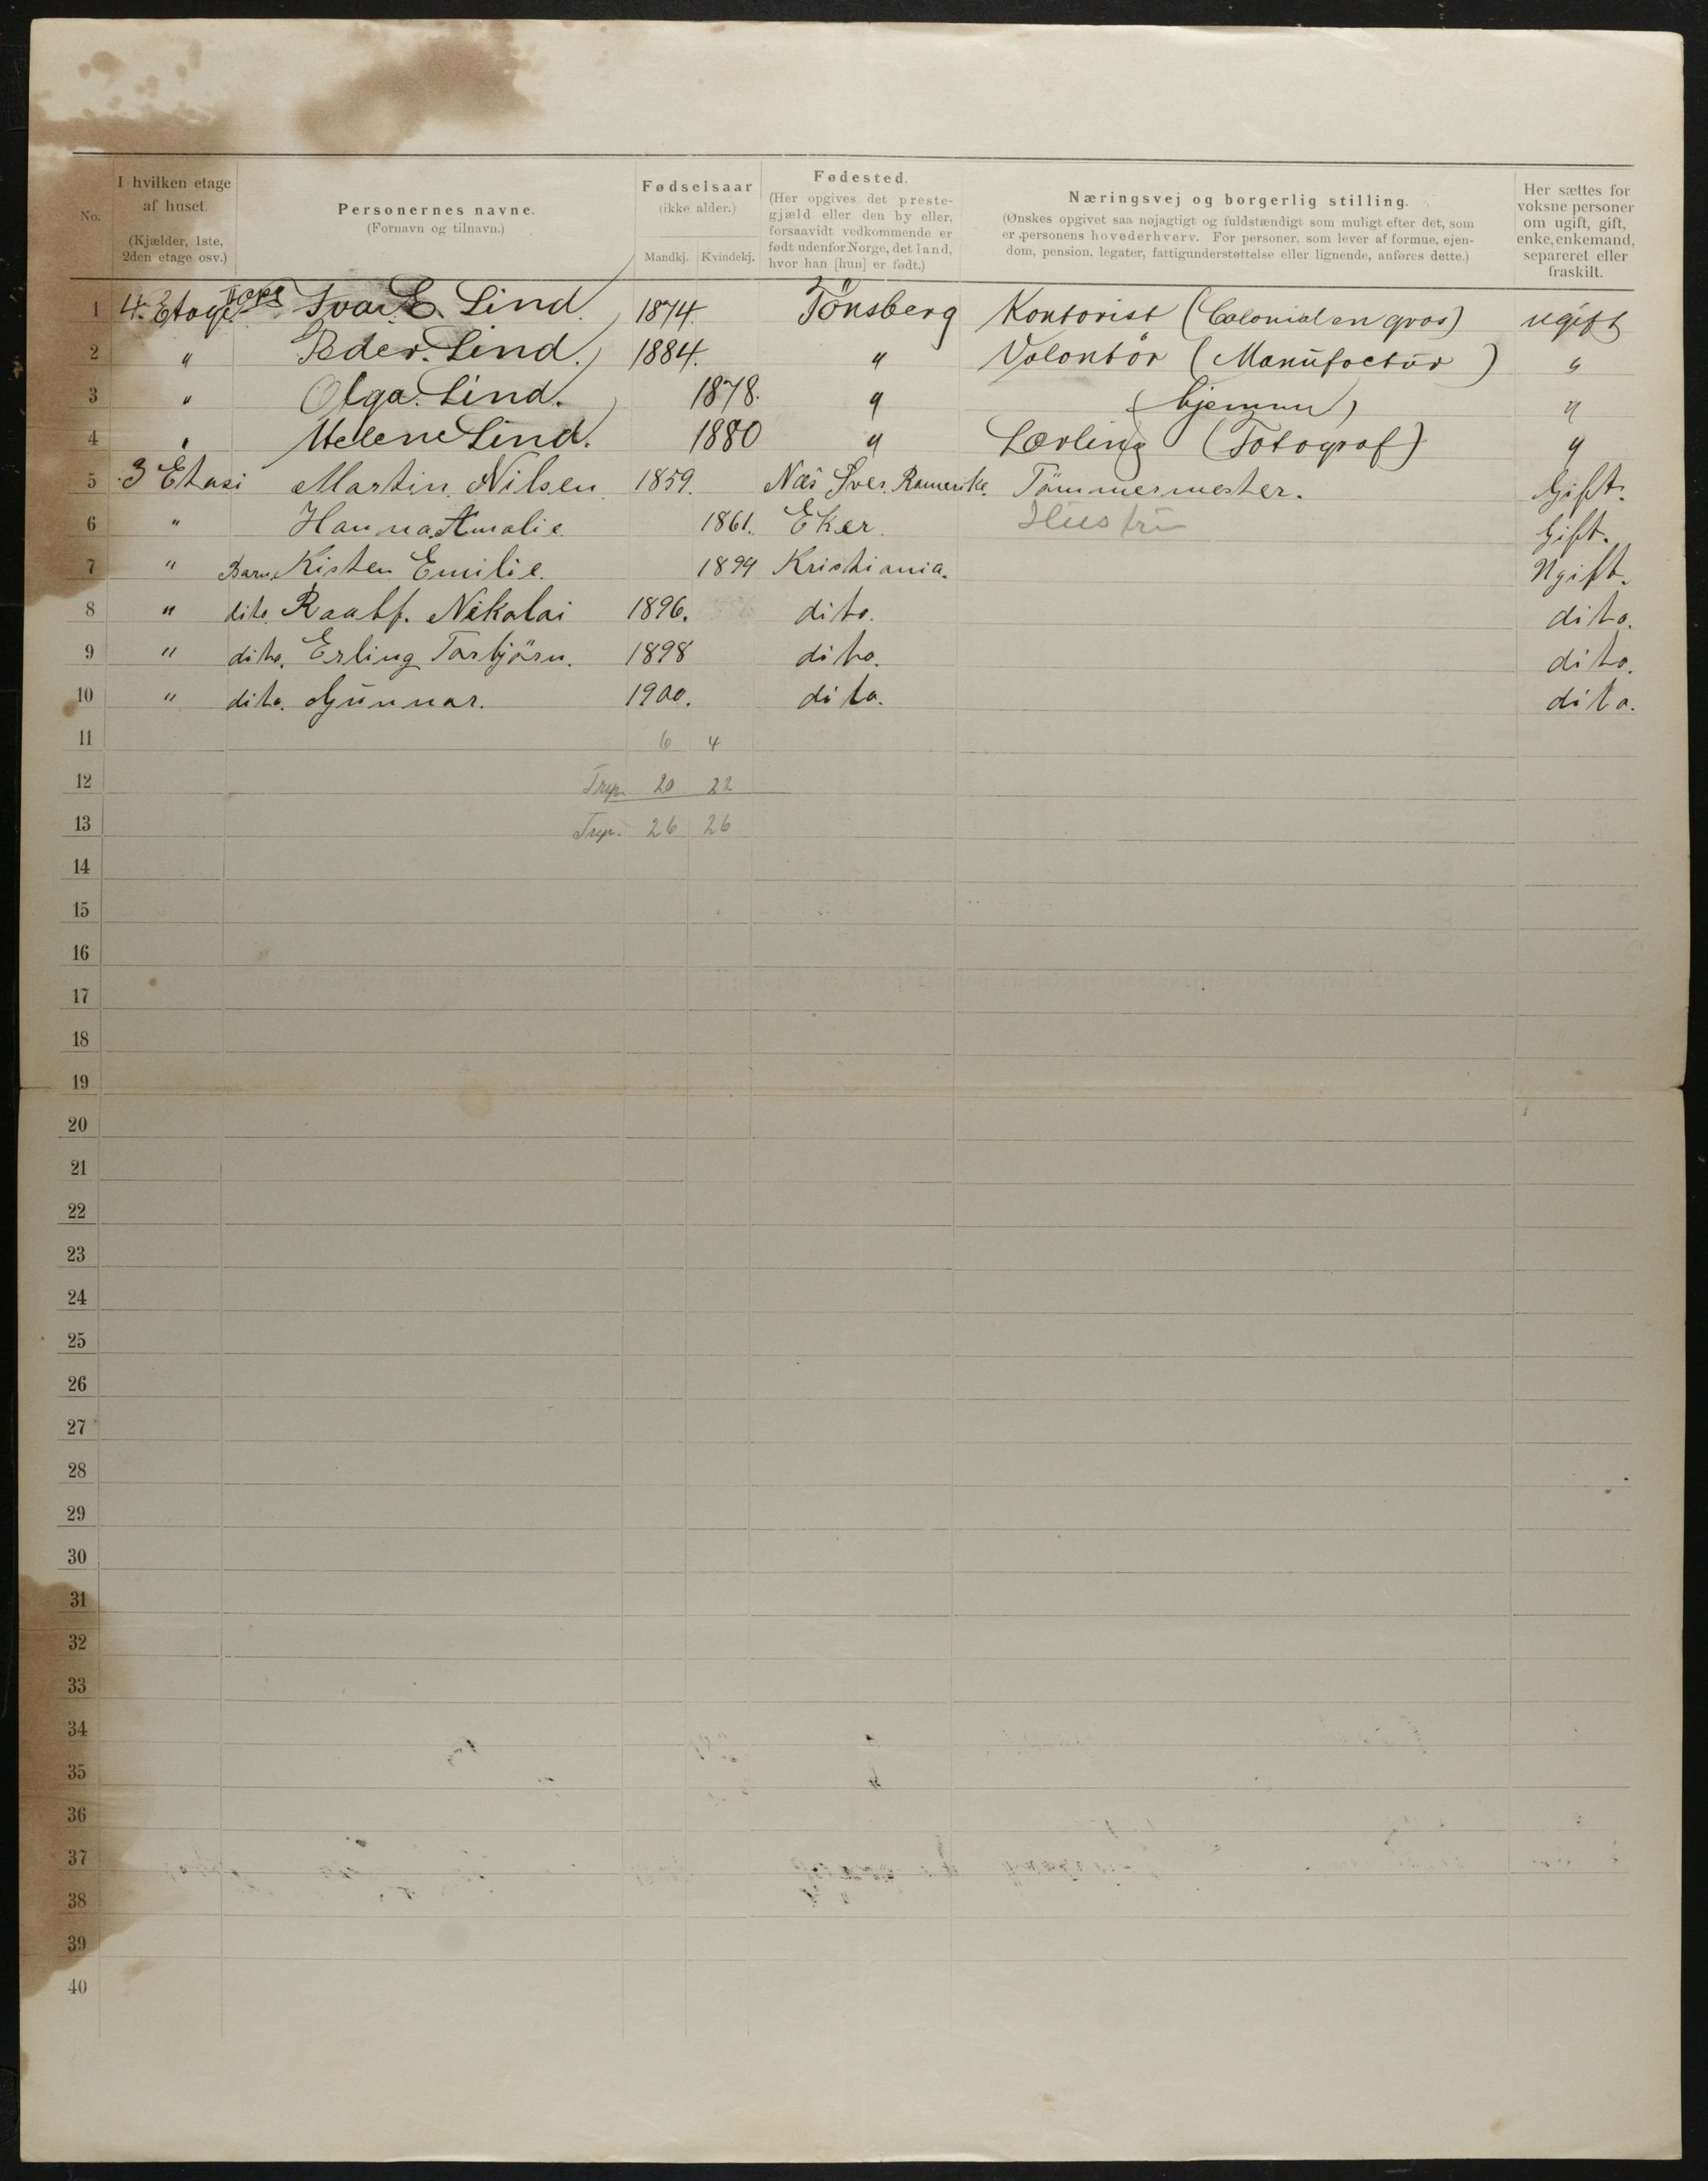 No.
I hvilken etage af huset.
(Kjælder, 1ste, 2den etage osv.)
Personernes navne.
(Fornavn og tilnavn.)
Fødselsaar
(ikke alder.)
Mandkj. Kvindekj.
Fødested.
(Her opgives det prestegjæld eller den by eller, forsaavidt vedkommende er født udenfor Norge, det land, hvor han [hun] er født.)
Næringsvej og borgerlig stilling.
(Ønskes opgivet saa nøjagtigt og fuldstændigt som muligt efter det, som er personens hovederhverv. For personer, som lever af formue, ejendom, pension, legater, fattigunderstøttelse eller lignende, anføres dette.)
Her sættes for voksne personer om ugift, gift, enke, enkemand, separeret eller fraskilt.
1 4. Etage E. Lind. 1874. Tönsberg Kontorist (Colonial en gros) ugift
2 " Peder. Lind. 1884. " Volontör (Manufactür) "
3 " Olga. Lind. 1878. " (hjemme) "
4 " Helene Lind. 1880 " Lærling (Fotograf) "
5 3 Etasi Martin Nilsen 1859. Næs Tömmermester. Gift.
6 " Hanna Amalie. 1861. Eker. Hustrü Gift.
7 " Barn. Kisten Emilie. 1894 Kristiania. Ugift.
8 " dito. Nikolai 1896. dito. dito.
9 " dito. Erling Torbjörn. 1898 dito. dito.
10 " dito. Günnar. 1900. dito. dito.
11 6 4
12 20 22
13 26 26
14
15
16
17
18
19
20
21
22
23
24
25
26
27
28
29
30
31
32
33
34
35
36
37
38
39
40